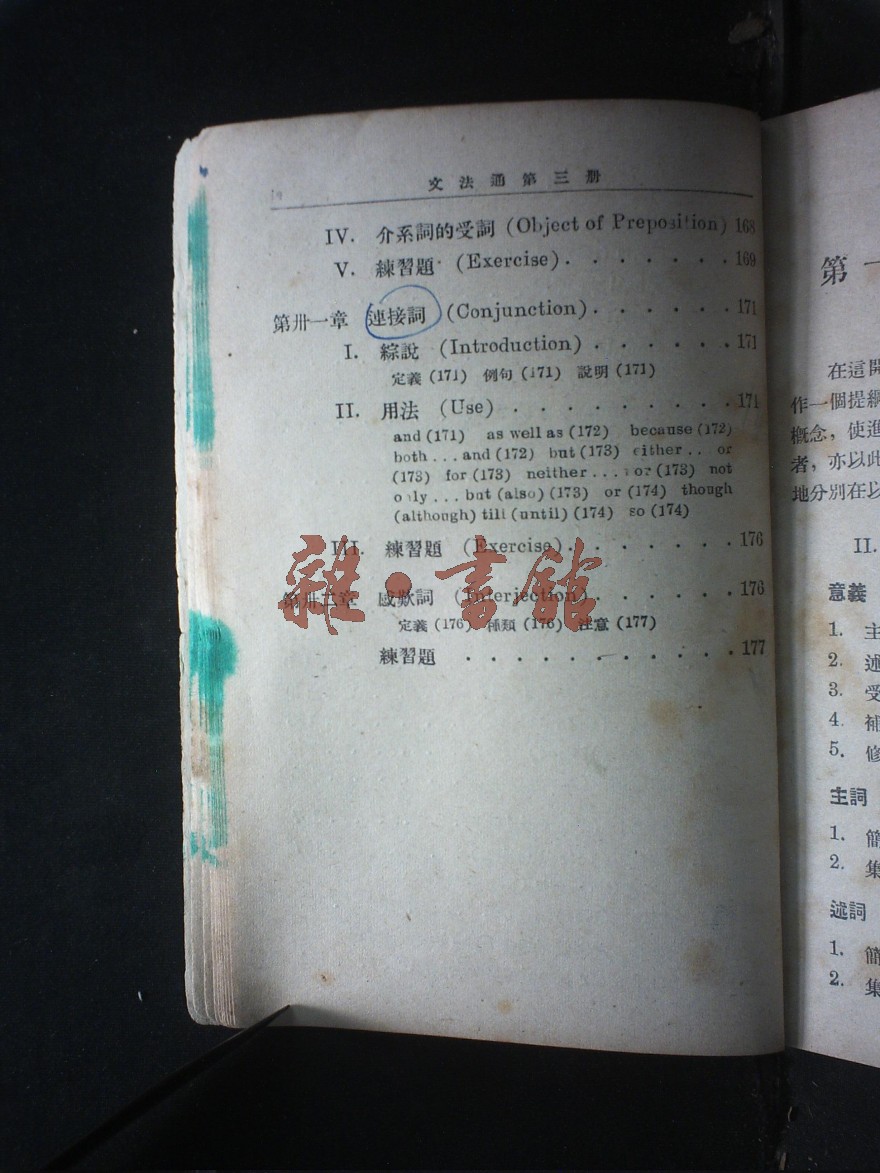 文法通第三册
IV. 介系詞的受詞 (Object of Preposition) 168
V. 練習題 (Exercise) . . . . . . . 169
第卅一章 連接詞 (Conjunction) . . . . . . 171
I. 綜說 (Introduction) . . . . . . 171
定義 (171) 例句 (171) 說明 (171)
II. 用法 (Use) . . . . . . . . . 171
and (171) as well as (172) because (172)
both . . . and (172) but (173) either . . . or
(173) for (173) neither . . . nor (173) not
only . . . but (also) (173) or (174) though
(although) till (until) (174) so (174)
III. 練習題 (Exercise) . . . . . . . 176
第卅二章 感歎詞 (Interjection) . . . . . . 176
定義 (176) 種類 (176) 注意 (177)
練習題 . . . . . . . . . . . 177
雜·書館
第一
在這開
作一個提綱
概念，使進
者，亦以此
地分別在以
II.
意義
1. 主
2. 述
3. 受
4. 補
5. 修
主詞
1. 簡
2. 集
述詞
1. 簡
2. 集